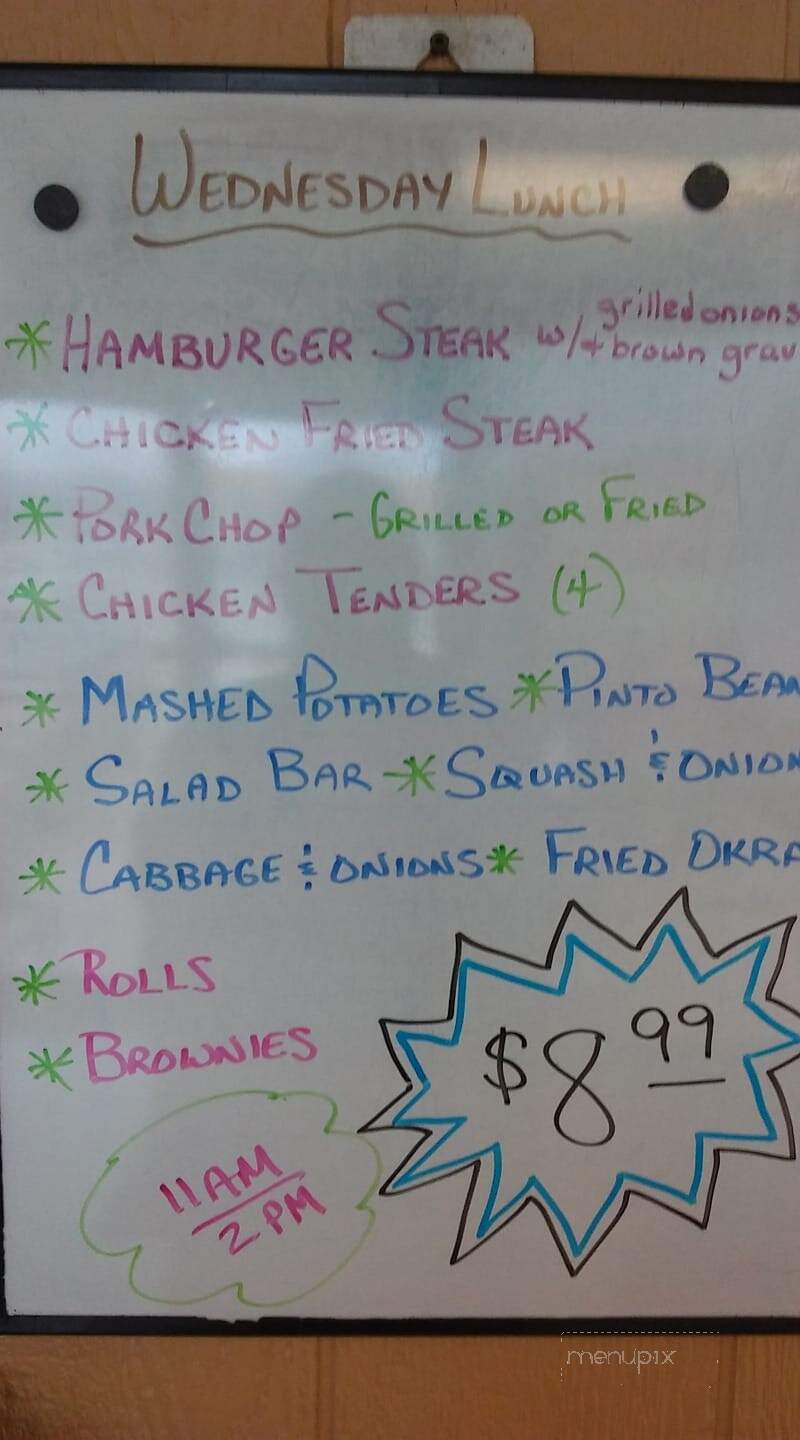 WEDNESDAY LUNCH
* HAMBURGER STEAK w/ grilled onions
+ brown grav
* CHICKEN FRIED STEAK
* PORK CHOP - GRILLED OR FRIED
* CHICKEN TENDERS (4)
* MASHED POTATOES * PINTO BEAN
* SALAD BAR * SQUASH & ONION
* CABBAGE & ONIONS * FRIED OKRA
* ROLLS
* BROWNIES
$8 99
11AM
2PM
menupix